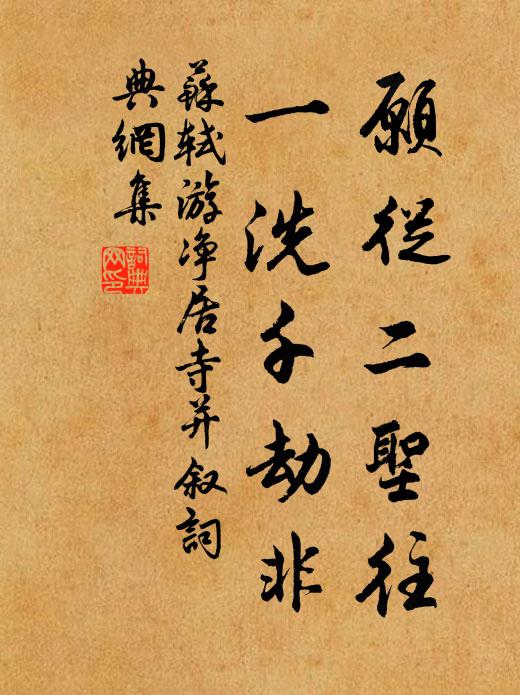 願從二聖往
一洗千劫非
蘇軾游净居寺并叙詞
典網集
詞典
网印